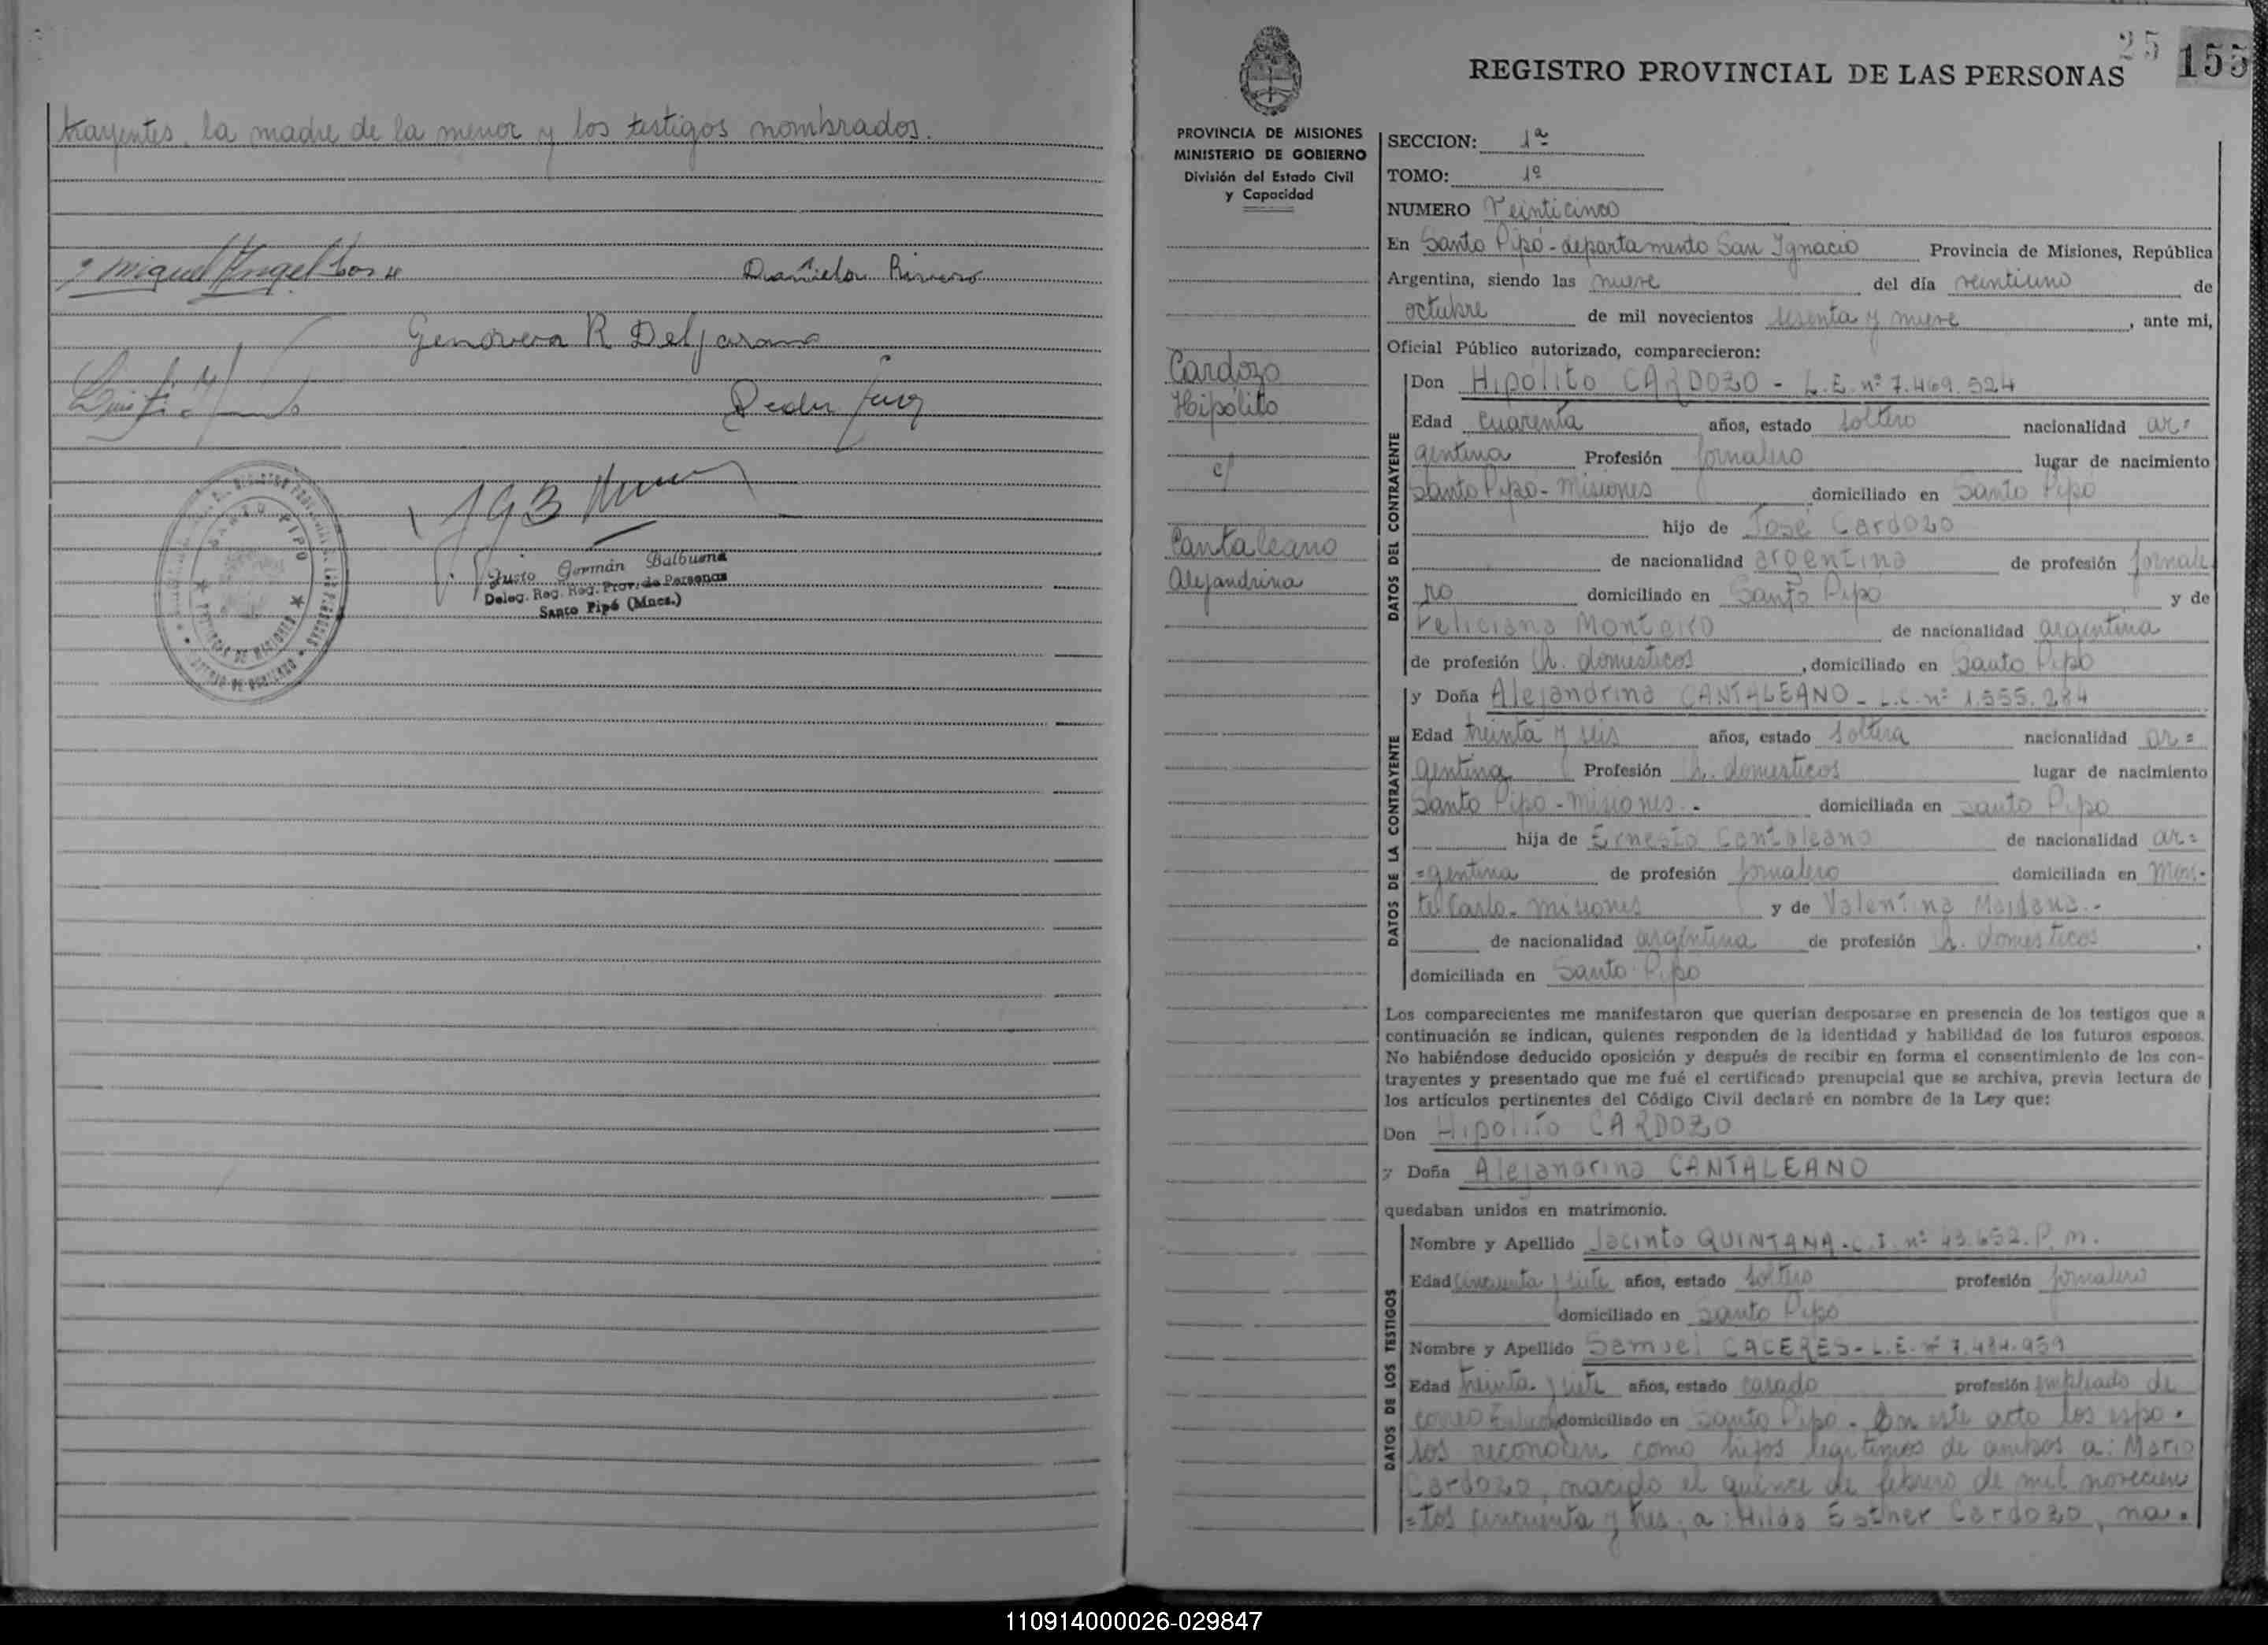 trayentes, la madre de la menor y los testigos nombrados.
Miguel Angel
Genoveva R
Justo Germán Balbuena
Deleg. Reg. Prov. de Personas
Santo Pipó (Mnes.)
25 155
REGISTRO PROVINCIAL DE LAS PERSONAS
PROVINCIA DE MISIONES
MINISTERIO DE GOBIERNO
División del Estado Civil
y Capacidad
Cardozo
Hipólito
c/
Cantaleano
Alejandrina
SECCION: 1ª
TOMO: 1º
NUMERO Veinticinco
En Santo Pipó - departamento San Ignacio Provincia de Misiones, República
Argentina, siendo las nueve del día veintiuno de
octubre de mil novecientos sesenta y nueve, ante mi,
Oficial Público autorizado, comparecieron:
DATOS DEL CONTRAYENTE
Don Hipólito CARDOZO - L.E. nº 7.469.524
Edad cuarenta años, estado soltero nacionalidad ar=
gentina Profesión jornalero lugar de nacimiento
Santo Pipó - Misiones domiciliado en Santo Pipó
hijo de José Cardozo
de nacionalidad argentina de profesión jornale
ro domiciliado en Santo Pipó y de
Feliciana de nacionalidad argentina
de profesión q. domésticos, domiciliado en Santo Pipó
DATOS DE LA CONTRAYENTE
y Doña Alejandrina CANTALEANO - L.C. nº 1.555.284
Edad treinta y seis años, estado soltera nacionalidad ar=
gentina Profesión q. domesticos lugar de nacimiento
Santo Pipó - Misiones.- domiciliada en Santo Pipó
hija de Ernesto Cantaleano de nacionalidad ar=
=gentina de profesión jornalero domiciliada en Mon-
te Carlo - Misiones y de Valentina Maidana.-
de nacionalidad argentina de profesión q. domesticos,
domiciliada en Santo Pipó
Los comparecientes me manifestaron que querían desposarse en presencia de los testigos que a
continuación se indican, quienes responden de la identidad y habilidad de los futuros esposos.
No habiéndose deducido oposición y después de recibir en forma el consentimiento de los con-
trayentes y presentado que me fué el certificado prenupcial que se archiva, previa lectura de
los artículos pertinentes del Código Civil declaré en nombre de la Ley que:
Don Hipólito CARDOZO
y Doña Alejandrina CANTALEANO
quedaban unidos en matrimonio.
DATOS DE LOS TESTIGOS
Nombre y Apellido Jacinto QUINTANA - C.I. nº 43.652. P.M.
Edad cincuenta y siete años, estado soltero profesión jornalero
domiciliado en Santo Pipó
Nombre y Apellido Samuel CACERES - L.E. nº 7.484.959
Edad treinta y siete años, estado casado profesión empleado de
correo domiciliado en Santo Pipó - En este acto los espo-
sos reconocen como hijos legítimos de ambos a: Mario
Cardozo, nacido el quince de febrero de mil novecien
=tos cincuenta y tres, a: Hilda Esther Cardozo, na-
110914000026-029847